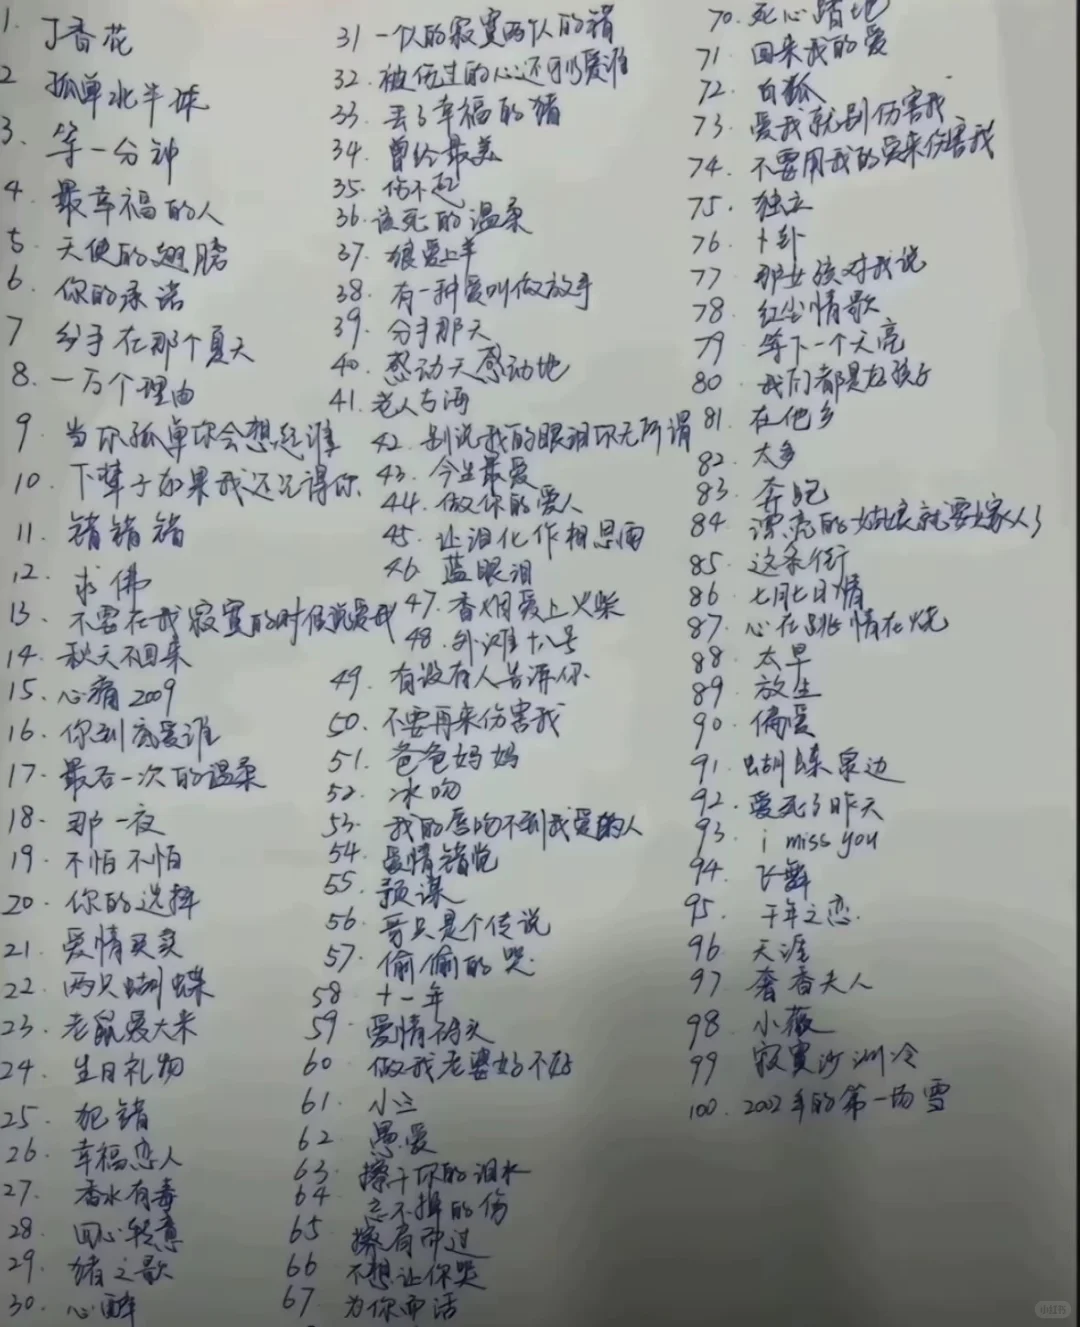 1. 丁香花
2 孤单北半球
3. 等一分钟
4. 最幸福的人
5 天使的翅膀
6. 你的承诺
7 分手在那个夏天
8. 一万个理由
9 当你孤单你会想起谁
10. 下辈子如果我还记得你
11. 错错错
12. 求佛
13. 不要在我寂寞的时候说爱我
14. 秋天不回来
15. 心痛2009
16. 你到底爱谁
17. 最后一次的温柔
18. 那一夜
19. 不怕不怕
20. 你的选择
21. 爱情买卖
22. 两只蝴蝶
23. 老鼠爱大米
24. 生日礼物
25. 犯错
26. 幸福恋人
27. 香水有毒
28 回心转意
29. 猪之歌
30. 心醉
31 一个人的寂寞两个人的错
32. 被伤过的心还可以爱谁
33. 丢了幸福的猪
34. 曾经最美
35. 伤不起
36. 该死的温柔
37. 狼爱上羊
38. 有一种爱叫做放手
39. 分手那天
40. 感动天感动地
41. 老人与海
42. 别说我的眼泪你无所谓
43. 今生最爱
44. 做你的爱人
45. 让泪化作相思雨
46. 蓝眼泪
47. 香烟爱上火柴
48. 外滩十八号
49. 有没有人告诉你
50. 不要再来伤害我
51. 爸爸妈妈
52. 冰吻
53. 我的唇吻不到我爱的人
54. 爱情错觉
55. 预谋
56. 哥只是个传说
57. 偷偷的哭
58 十一年
59 爱情码头
60 做我老婆好不好
61. 小三
62 愚爱
63 擦干你的泪水
64 忘不掉的伤
65 擦肩而过
66 不想让你哭
67 为你而活
70. 死心踏地
71 回来我的爱
72. 白狐
73. 爱我就别伤害我
74. 不要用我的爱来伤害我
75. 独立
76. 卜卦
77 那女孩对我说
78. 红尘情歌
79 等下一个天亮
80 我们都是好孩子
81. 在他乡
82. 太多
83. 奔跑
84 漂亮的姑娘就要嫁人了
85. 这条街
86 七月七日情
87. 心在跳情在烧
88 太早
89 放生
90 偏爱
91 蝴蝶泉边
92. 爱死了昨天
93. i miss you
94. 飞舞
95. 千年之恋.
96 天涯
97 奢香夫人
98 小薇
99 寂寞沙洲冷
100. 2002年的第一场雪
小红书